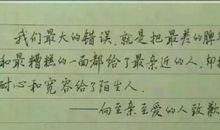 我们最大的错误,就是把最差的脾
和最糟糕的一面都给了最亲近的人,却
耐心和宽容给了陌生人
——向至亲至爱的人致歉